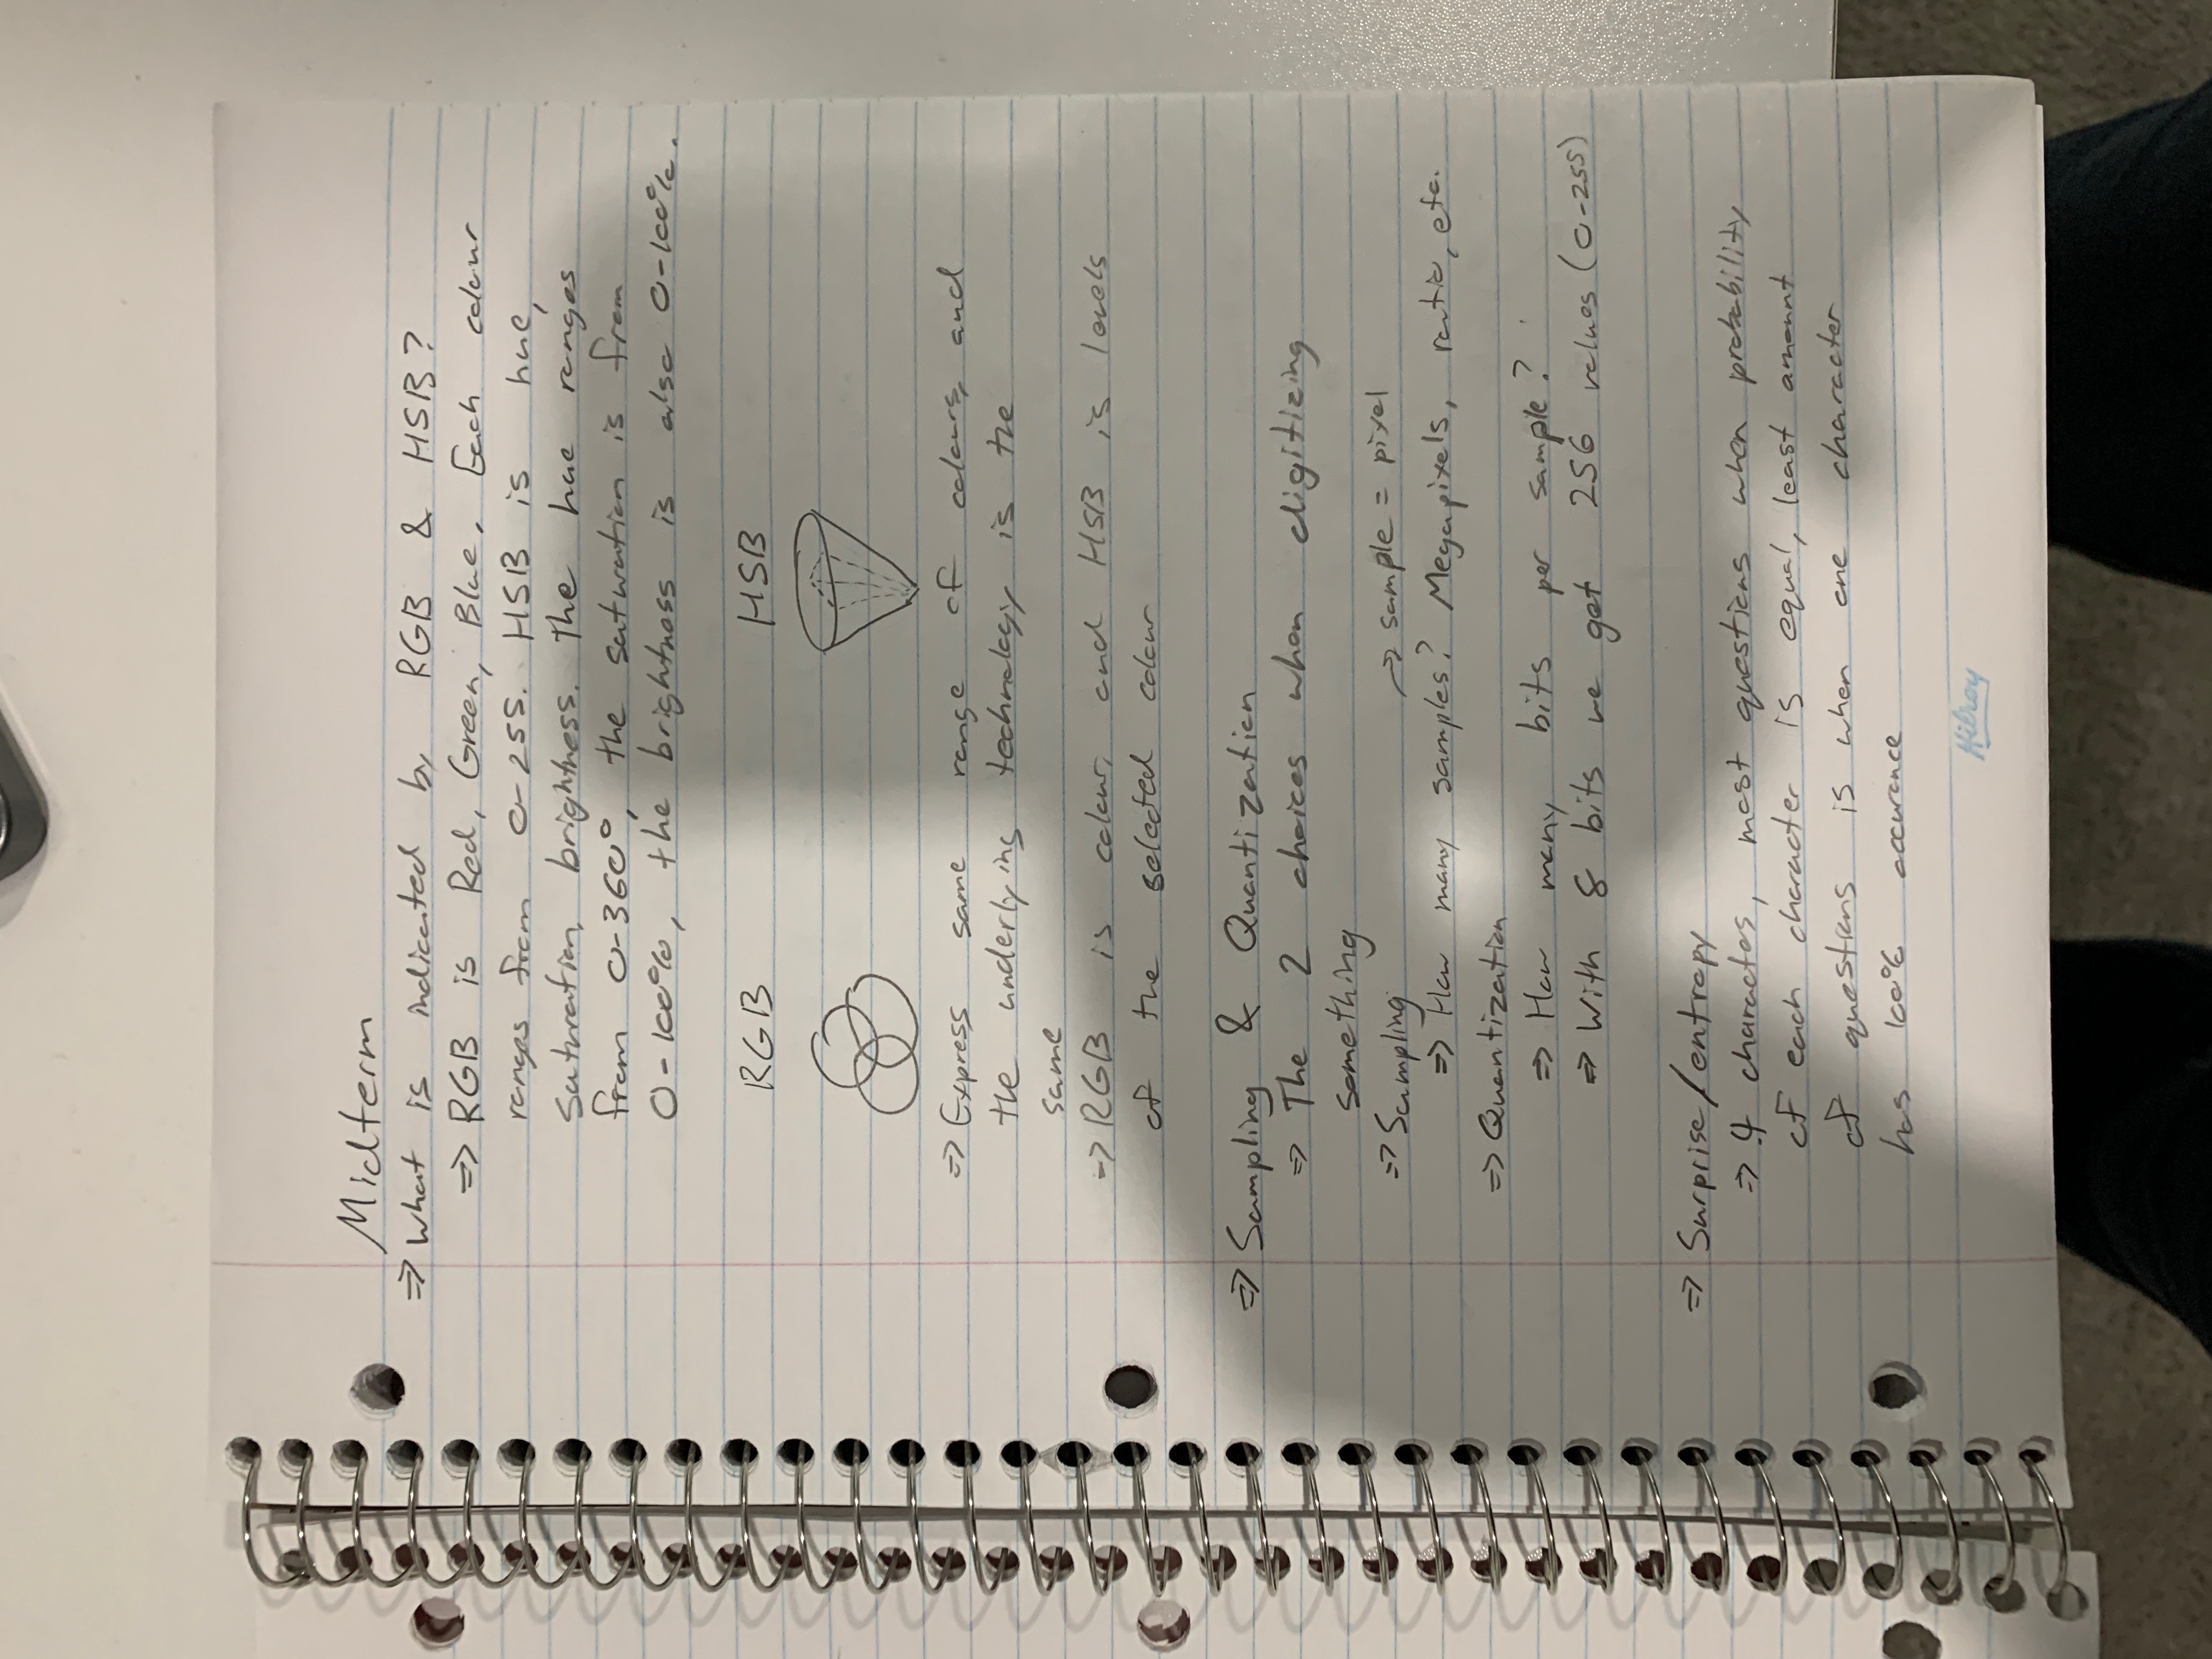 Midterm
⇒ What is indicated by RGB & HSB?
⇒ RGB is Red, Green, Blue. Each colour
ranges from 0-255. HSB is hue,
saturation, brightness. The hue ranges
from 0-360°, the saturation is from
0-100%, the brightness is also 0-100%.
RGB HSB
⇒ Express same range of colours, and
the underlying technology is the
same
⇒ RGB is colour, and HSB is levels
of the selected colour
⇒ Sampling & Quantization
⇒ The 2 choices when digitizing
something
⇒ Sampling → sample = pixel
⇒ How many samples? Megapixels, ratio, etc.
⇒ Quantization
⇒ How many bits per sample?
⇒ With 8 bits we get 256 values (0-255)
⇒ Surprise/entropy
⇒ 4 charactos, most questions when probability
of each character is equal, least amount
of questions is when one character
has 100% accurance
Hilroy